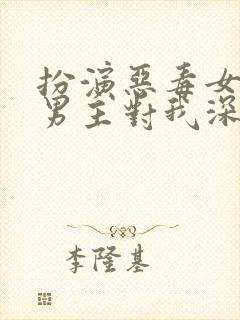 扮演惡毒女
男主對我深
李隆基